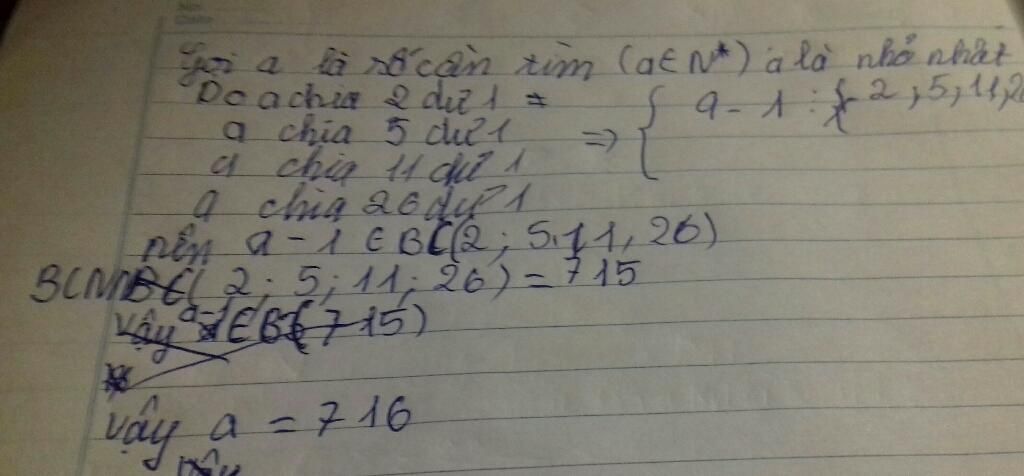 Gọi a là số cần tìm (a∈N*) a là nhỏ nhất
Do a chia 2 dư 1
a chia 5 dư 1 => { a - 1 ⋮ 2, 5, 11, 2
a chia 11 dư 1
a chia 26 dư 1
nên a - 1 ∈ BC(2; 5, 11, 26)
BCNN( 2; 5; 11; 26) = 715
Vậy a-1 ∈ B(715)
Vậy a = 716